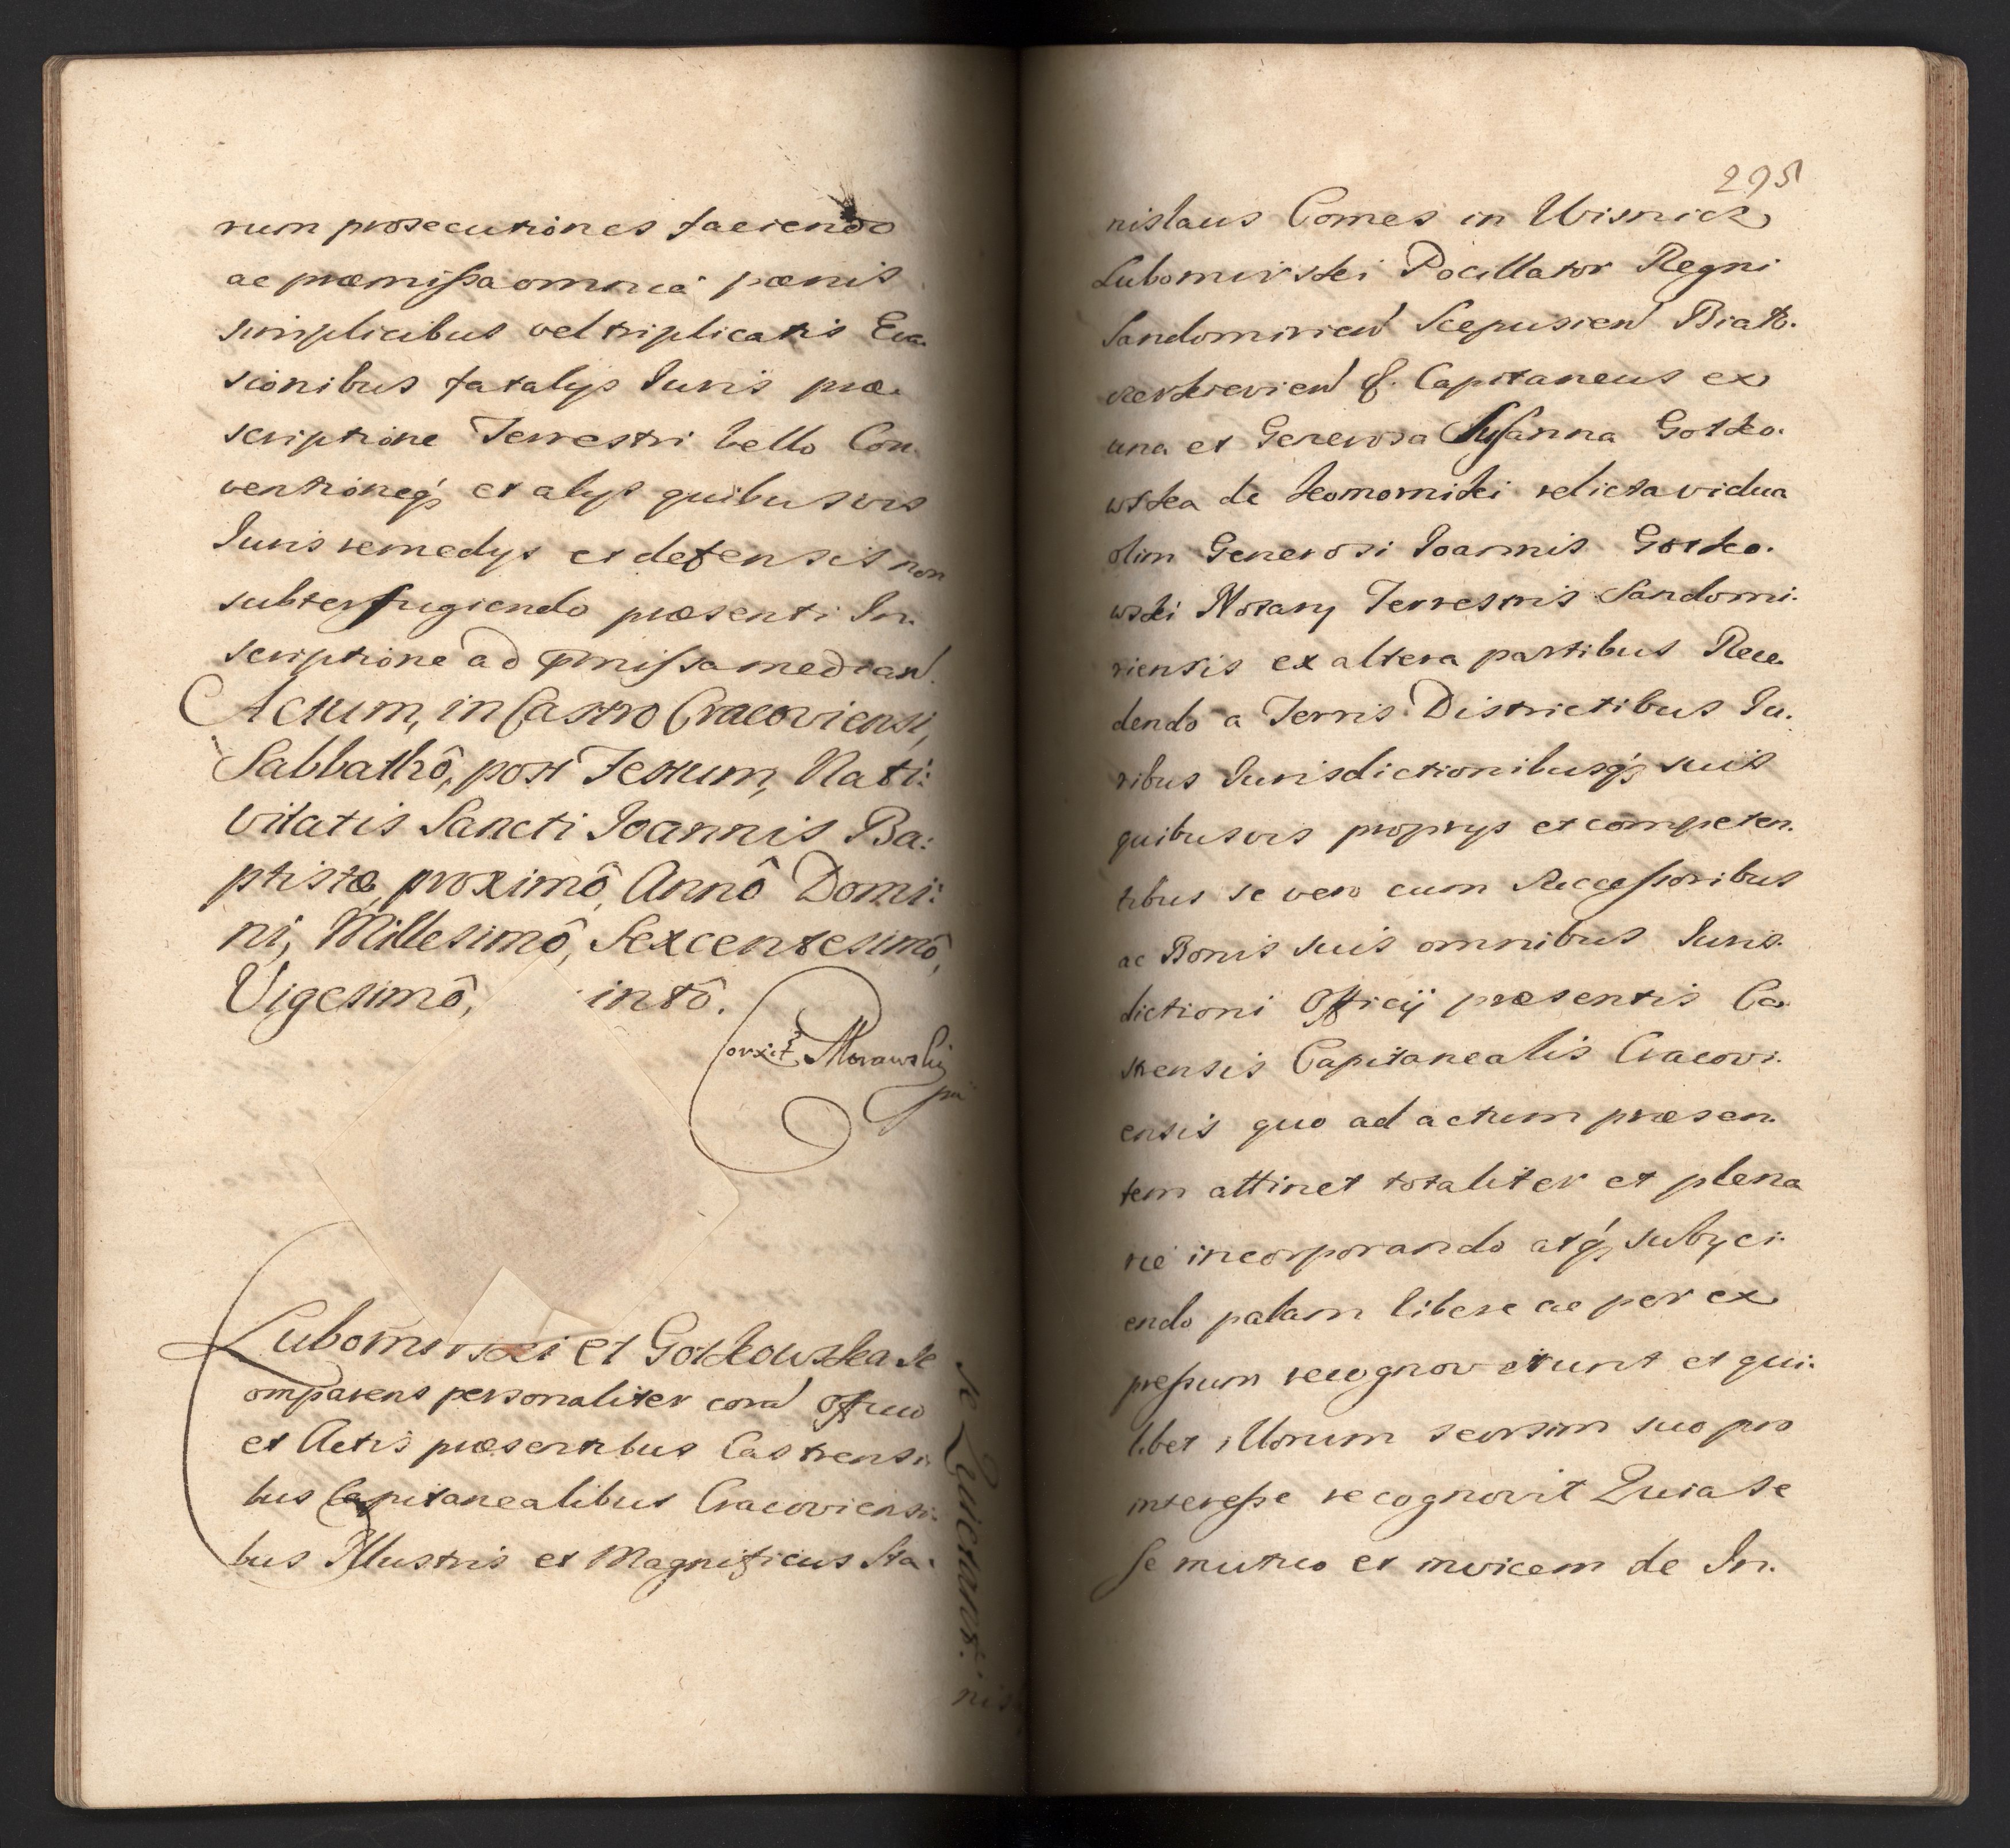 rum prosecutiones faciendo
ac præmissa omnia pœnis
simplicibus vel triplicatis Eva-
sionibus fatalys Iuris præ-
scriptione Terrestri bello Con-
ventioneq; et alys quibusvis
Iuris remedys et defensis non
subterfugiendo præsenti In-
scriptione ad pmissa median.
Actum, in Castro Cracoviensi,
Sabbathô, post Festum, Nati:
vitatis Sancti Ioannis Ba:
ptistæ, proximô, Annô Domi:
ni, Millesimô, Sexcentesimô,
Vigesimô, intô.
Morawski
Lubomirski et Gotkowska se
omparens personaliter coram Officio
et Actis præsentibus Castrensi-
bus Capitanealibus Cracoviensi-
bus Illustris et Magnificus Sta-
se Quietant.
nis
295
nislaus Comes in Wisnicz
Lubomirski Pocillator Regni
Sandomirien Scepusien Biało-
cerkievien &. Capitaneus ex
una et Generosa Susanna Gotko-
wska de Komorniki relicta vidua
olim Generosi Ioannis Gotko-
wski Notary Terrestris Sandomi-
riensis ex altera partibus Rece-
dendo a Terris Districtibus Iu-
ribus Iurisdictionibusq; suis
quibusvis proprys et competen-
tibus se vero cum Successoribus
ac Bonis suis omnibus Iuris-
dictioni Officij præsentis Ca-
strensis Capitanealis Cracovi-
ensis quo ad actum præsen-
tem attinet totaliter et plena
rie incorporando atq; subyci-
endo palam libere ac per ex
pressum recognoverunt et qui-
libet illorum seorsim suo pro
interesse recognovit Quia se
se mutuo et invicem de In-